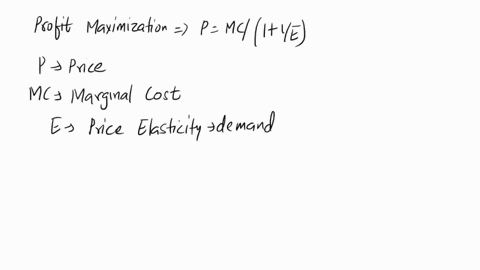 Profit Maximization => P = MC/(1+1/E)
P → Price
MC → Marginal Cost
E → Price Elasticity → demand